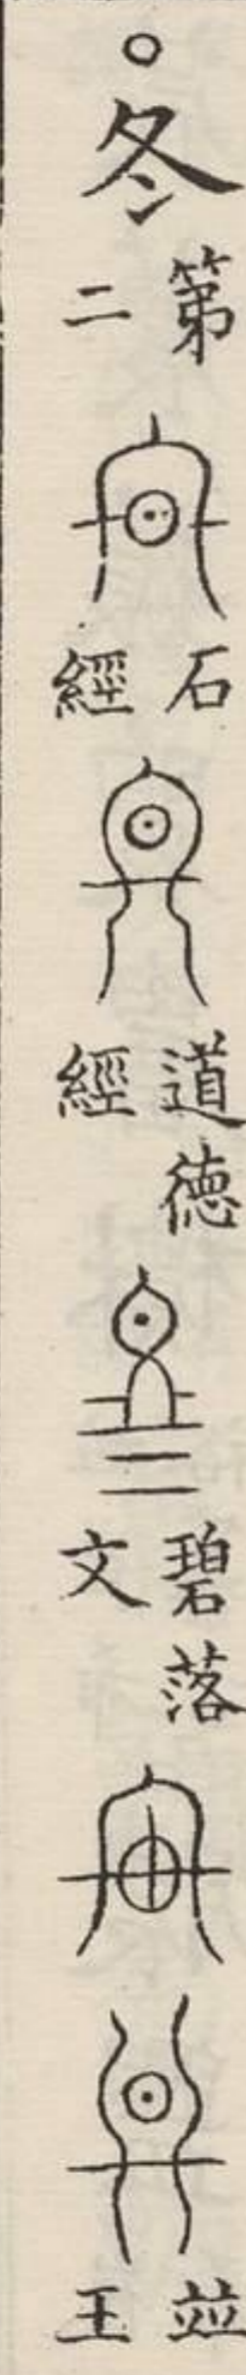 ○冬第二
石經
道德經
碧落文
並王